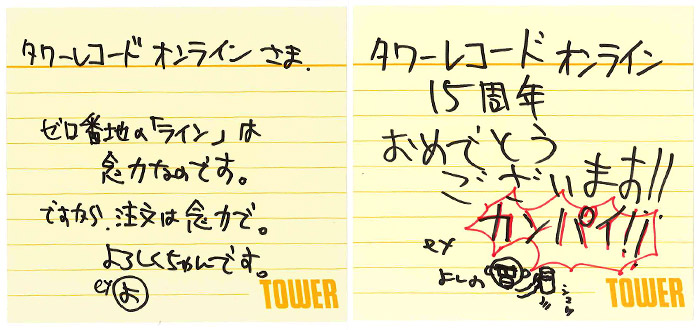 タワーレコード オンライン さま.
ゼロ番地の「ライン」は
念力なのです。
ですから、注文は念力で。
よろしくちゃんです。
ex よ
TOWER
タワーレコード オンライン
15周年
おめでとう
ございます!!
カンパイ!!
ex
よしの
TOWER